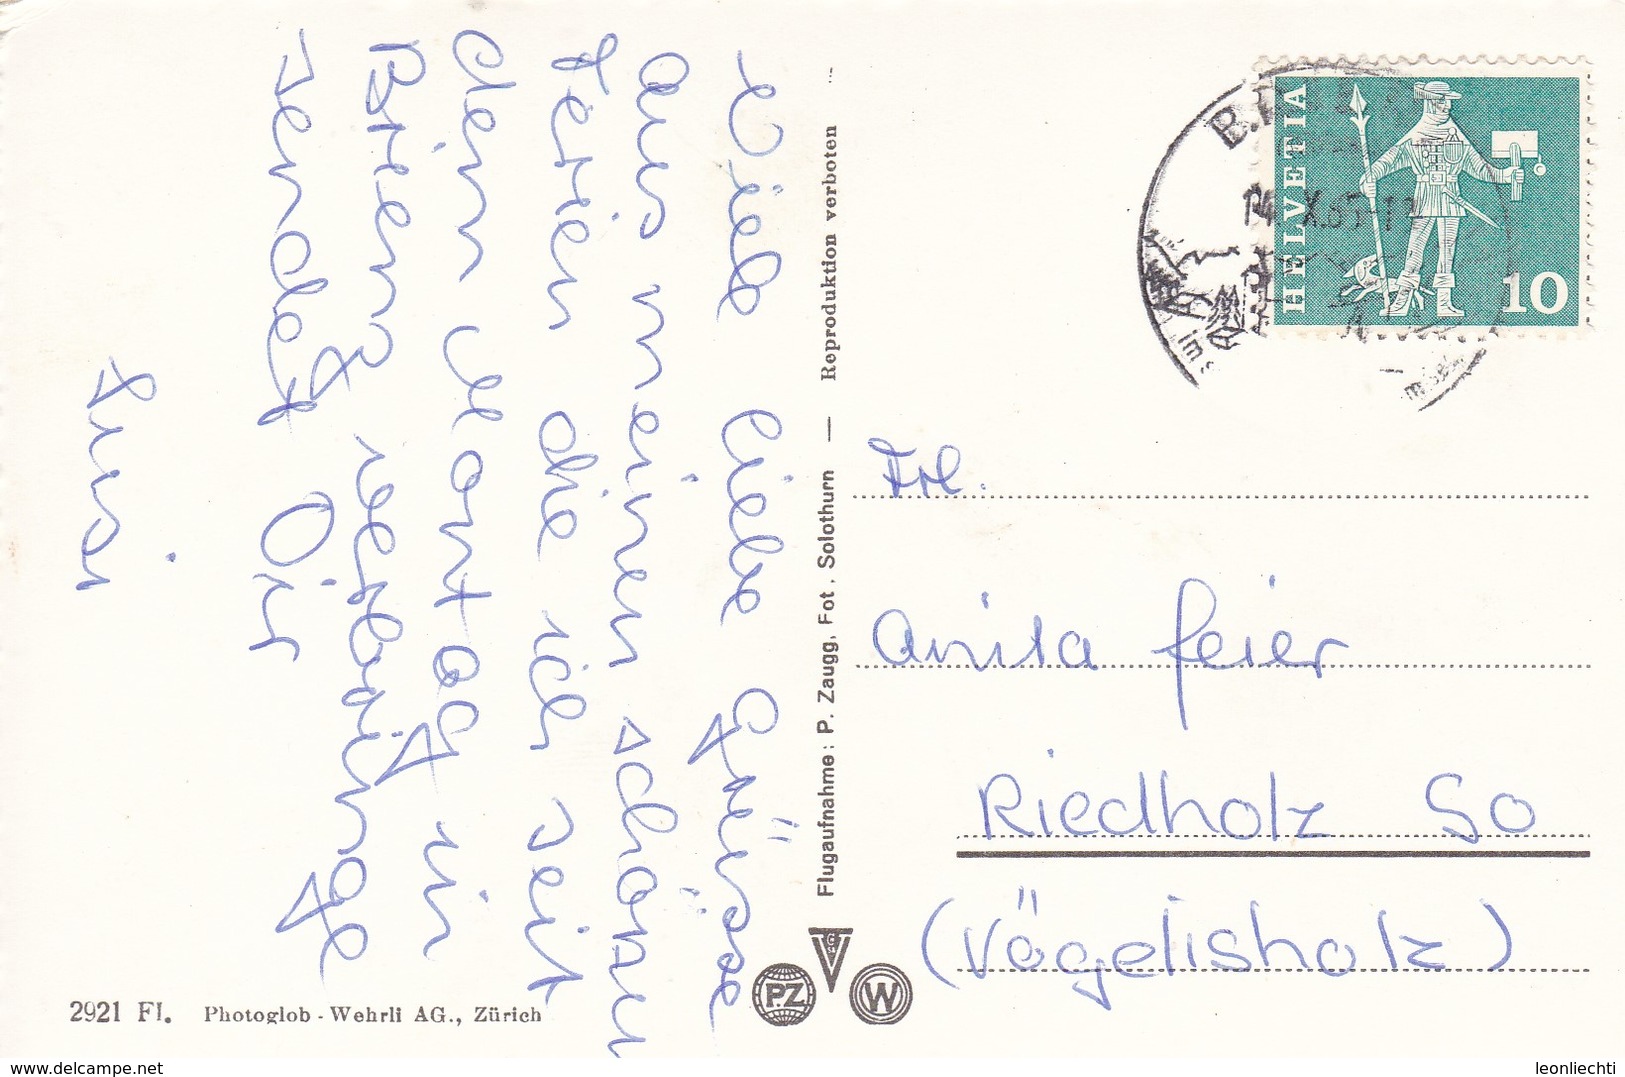 Viele liebe Grüsse
aus meinen schönen
Ferien die ich seit
dem Montag in
Brienz verbringe
sendet Dir
Susi
Reproduktion verboten
Flugaufnahme: P. Zaugg, Fot., Solothurn —
2921 Fl. Photoglob - Wehrli AG., Zürich
PZ
W
HELVETIA
10
X.65-12
Frl.
Anita Feier
Riedholz SO
(Vögelisholz)
leonliechti
www.delcampe.net